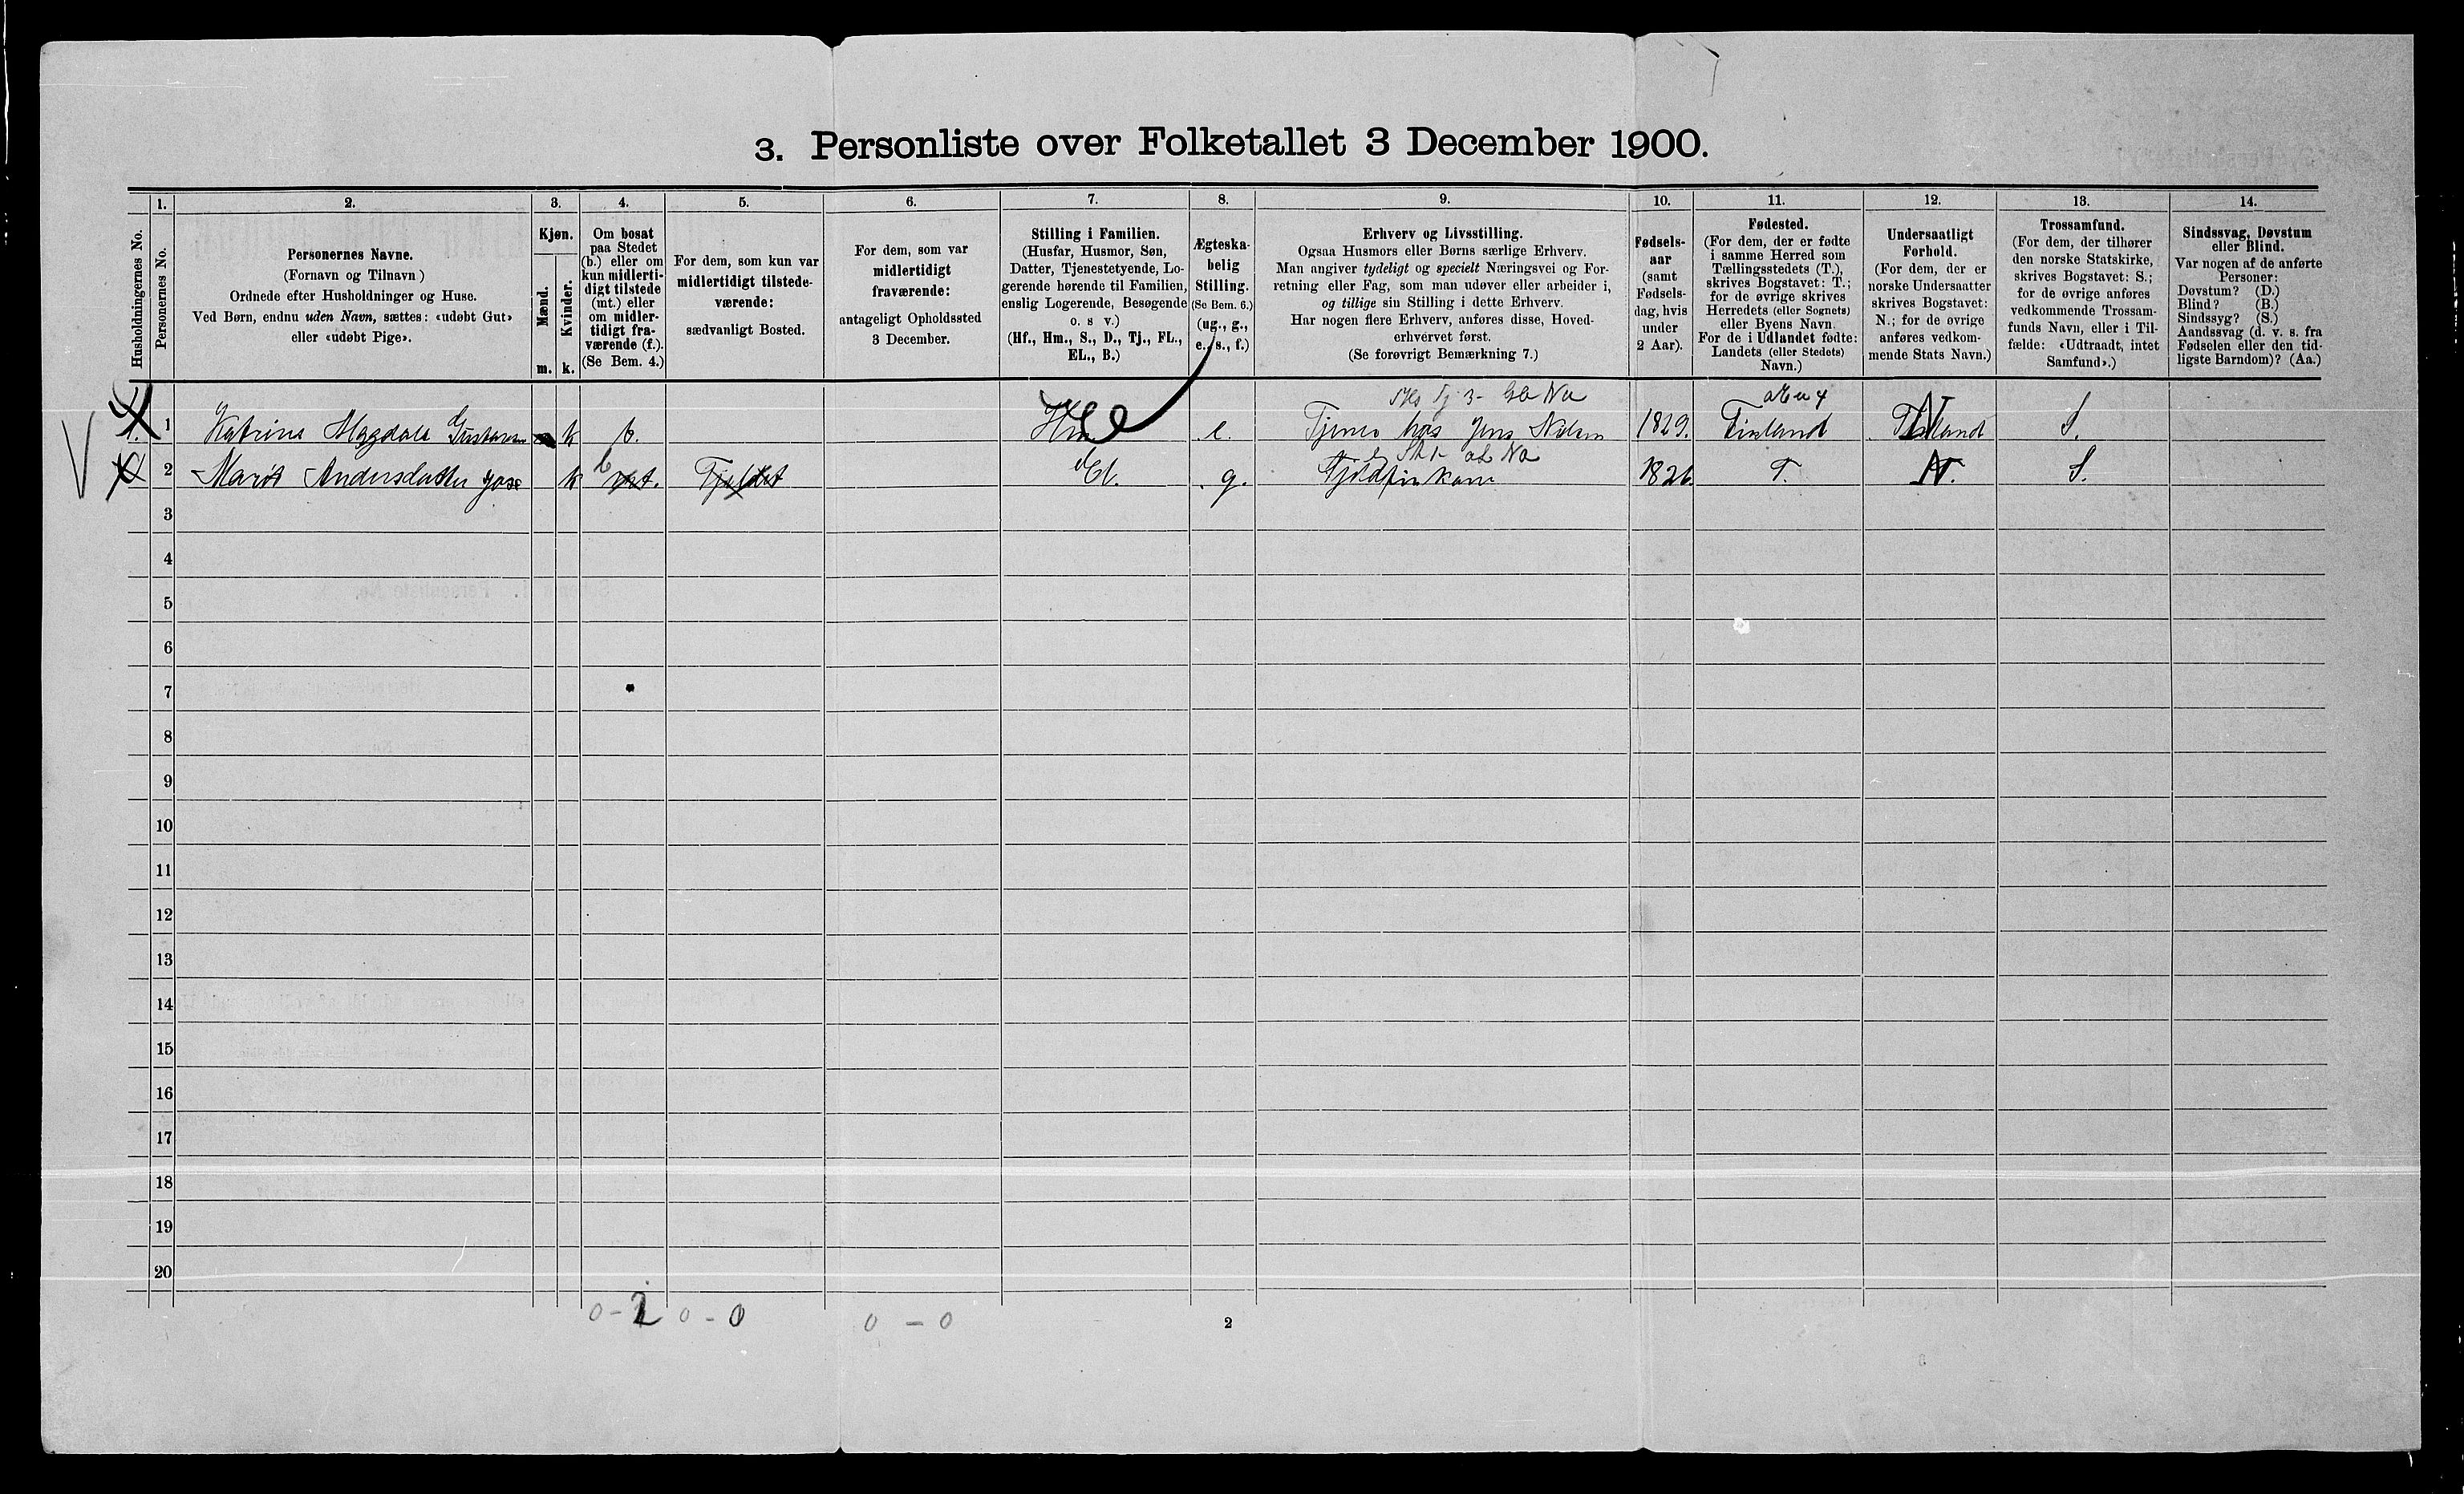 3. Personliste over Folketallet 3 December 1900.
Husholdningernes No.
1. Personernes No.
2. Personernes Navne.
(Fornavn og Tilnavn)
Ordnede efter Husholdninger og Huse.
Ved Børn, endnu uden Navn, sættes: «udøbt Gut»
eller «udøbt Pige».
3. Kjøn.
Mænd. m.
Kvinder. k.
4. Om bosat
paa Stedet
(b.) eller om
kun midlerti-
digt tilstede
(mt.) eller
om midler-
tidigt fra-
værende (f.).
(Se Bem. 4.)
5. For dem, som kun var
midlertidigt tilstede-
værende:
sædvanligt Bosted.
6. For dem, som var
midlertidigt
fraværende:
antageligt Opholdssted
3 December.
7. Stilling i Familien.
(Husfar, Husmor, Søn,
Datter, Tjenestetyende, Lo-
gerende hørende til Familien,
enslig Logerende, Besøgende
o. s v.)
(Hf., Hm., S., D., Tj., FL.,
EL., B.)
8. Ægteska-
belig
Stilling.
(Se Bem. 6.)
(ug., g.,
e., s., f.)
9. Erhverv og Livsstilling.
Ogsaa Husmors eller Børns særlige Erhverv.
Man angiver tydeligt og specielt Næringsvei og For-
retning eller Fag, som man udøver eller arbeider i,
og tillige sin Stilling i dette Erhverv.
Har nogen flere Erhverv, anføres disse, Hoved-
erhvervet først.
(Se forøvrigt Bemærkning 7.)
10. Fødsels-
aar
(samt
Fødsels-
dag, hvis
under
2 Aar).
11. Fødested.
(For dem, der er fødte
i samme Herred som
Tællingsstedets (T.),
skrives Bogstavet: T.;
for de øvrige skrives
Herredets (eller Sognets)
eller Byens Navn.
For de i Udlandet fødte:
Landets (eller Stedets)
Navn.)
12. Undersaatligt
Forhold.
(For dem, der er
norske Undersaatter
skrives Bogstavet:
N.; for de øvrige
anføres vedkom-
mende Stats Navn.)
13. Trossamfund.
(For dem, der tilhører
den norske Statskirke,
skrives Bogstavet: S.;
for de øvrige anføres
vedkommende Trossam-
funds Navn, eller i Til-
fælde: «Udtraadt, intet
Samfund».)
14. Sindssvag, Døvstum
eller Blind.
Var nogen af de anførte
Personer:
Døvstum? (D.)
Blind? (B.)
Sindssyg? (S.)
Aandssvag (d. v. s. fra
Fødselen eller den tid-
ligste Barndom)? (Aa.)
1 Katrine Magdale k b. e. Tjener hos Jens Nilsen 1829. Finland N S.
2 Marit Andersdatter k b mt. Fjeldet El. g. Fjeldfin kone 1826. T. N. S.
3
4
5
6
7
8
9
10
11
12
13
14
15
16
17
18
19
20
0-2 0-0 0-0
2